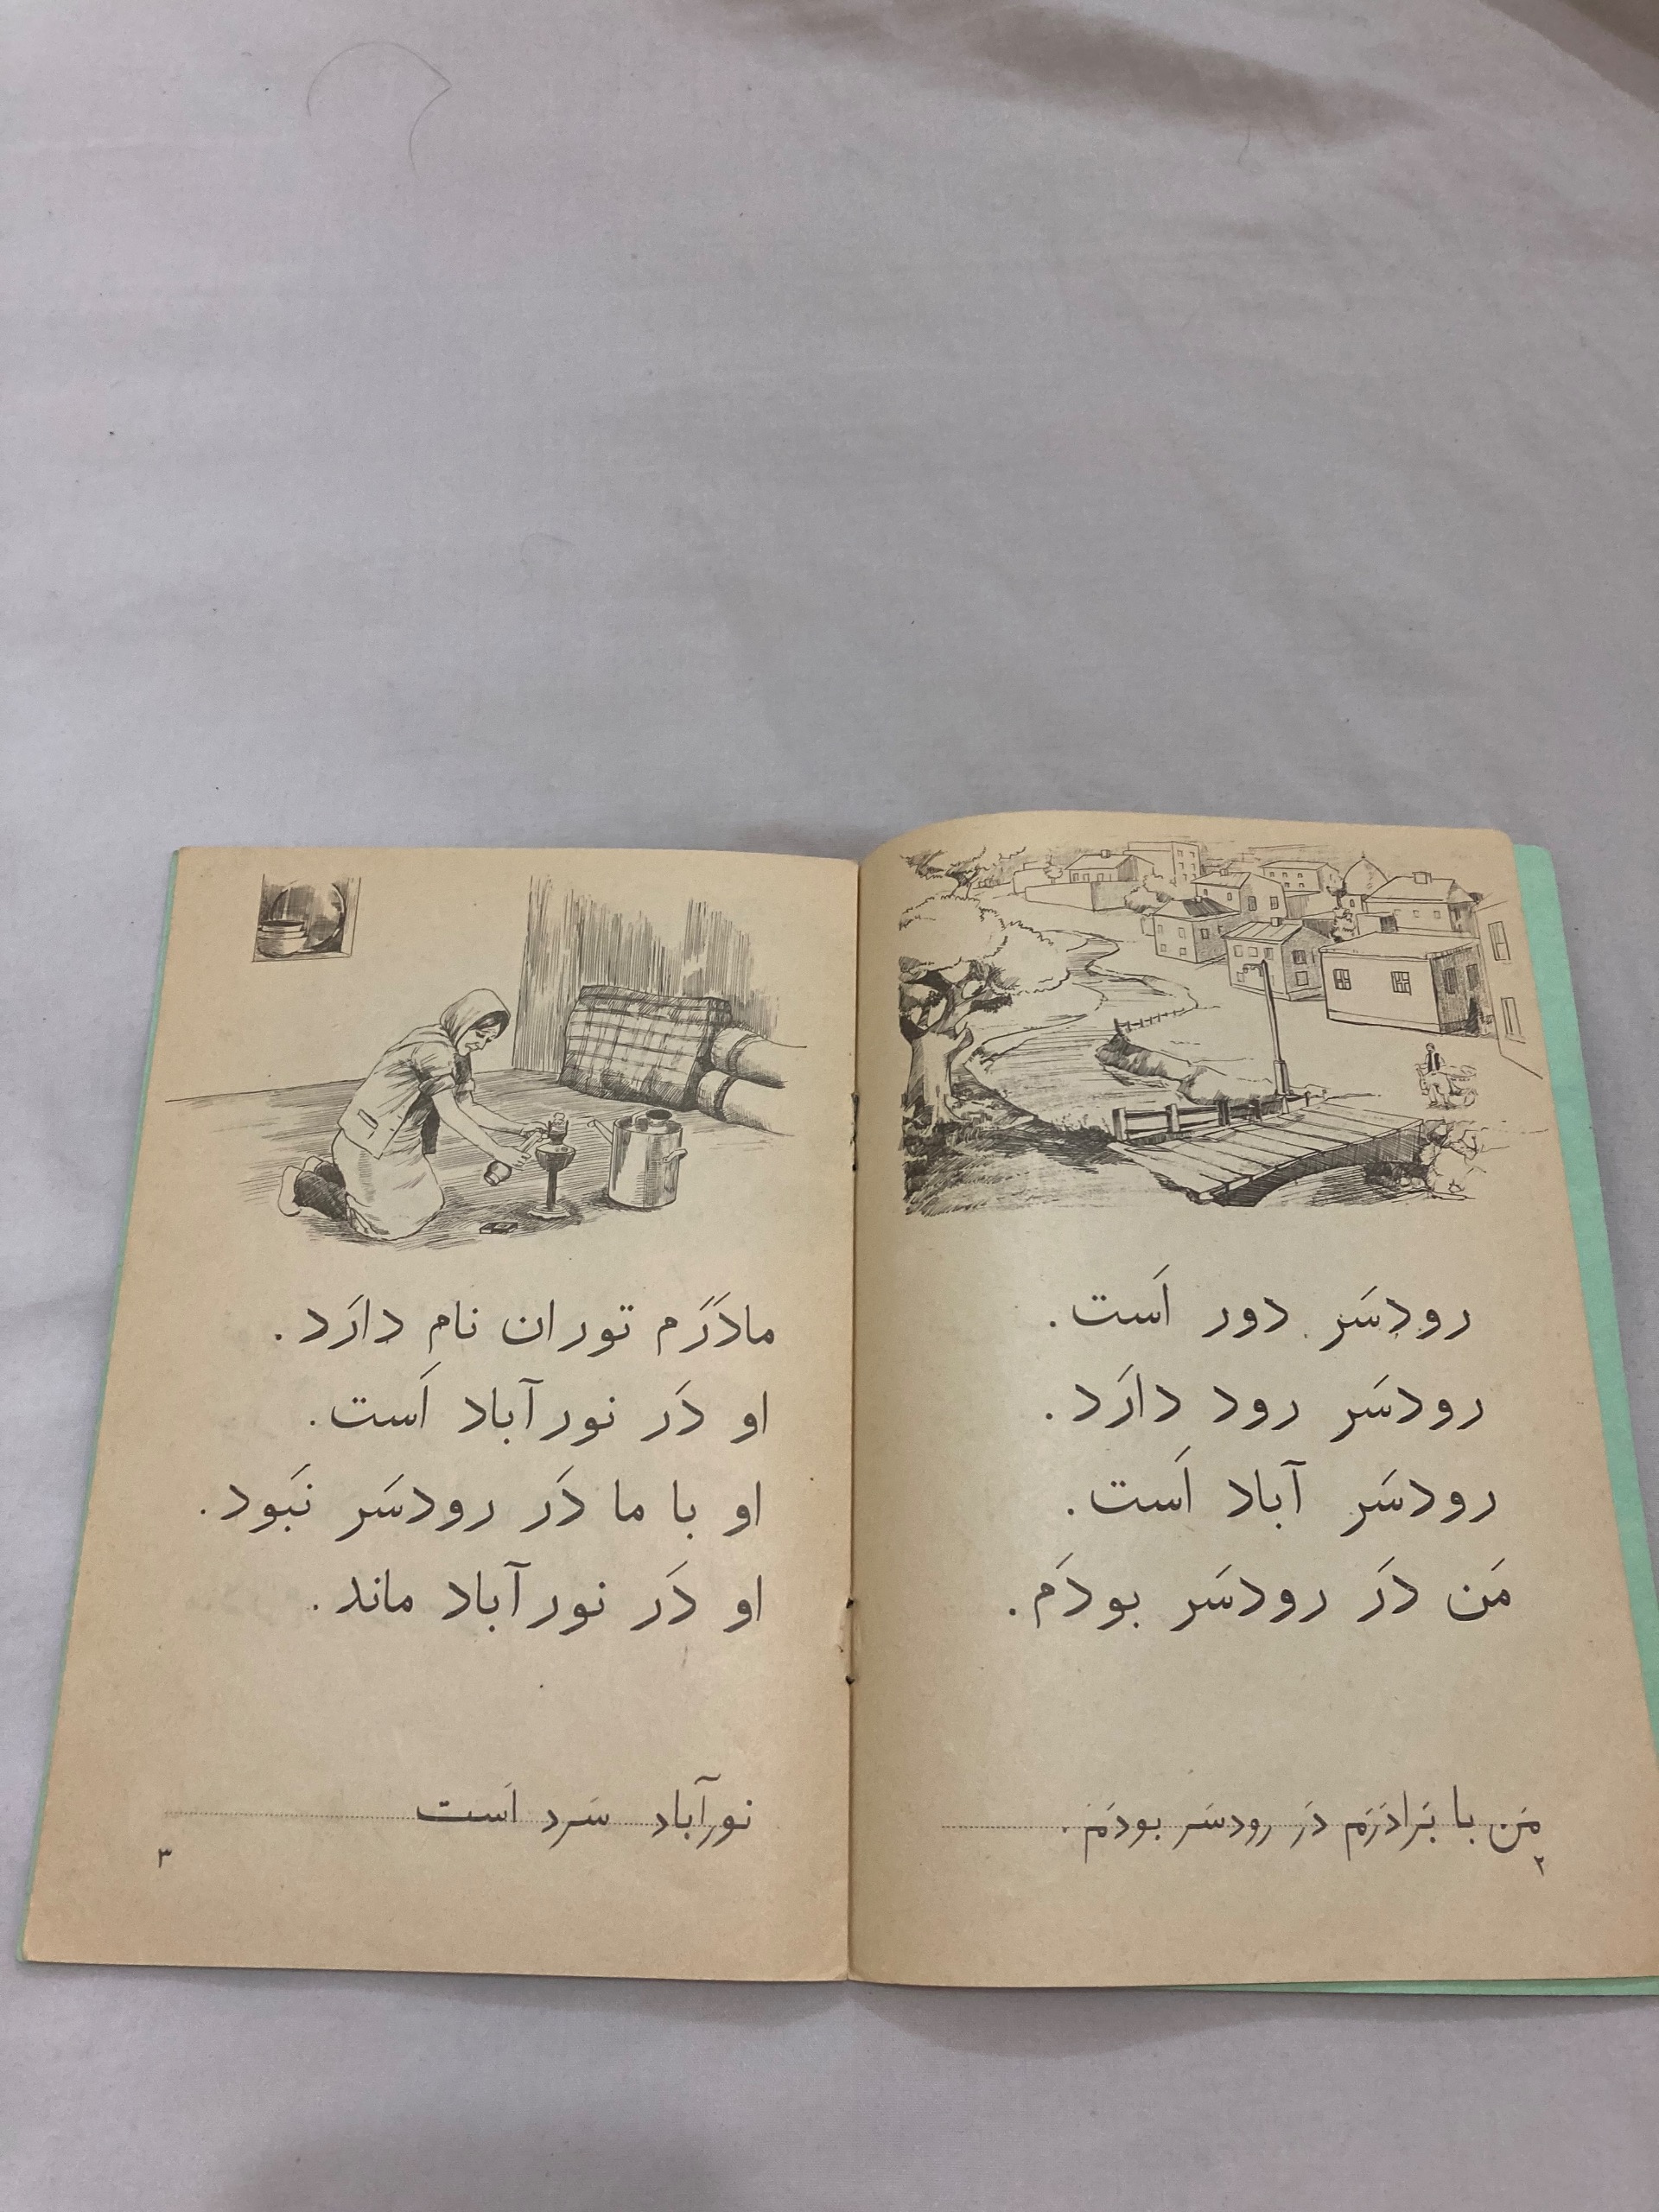 رودسَر دور اَست.
رودسَر رود دارَد.
رودسَر آباد اَست.
مَن دَر رودسَر بودَم.
مَن با بَرادَرَم دَر رودسَر بودَم.
۲
مادَرَم توران نام دارَد.
او دَر نورآباد اَست.
او با ما دَر رودسَر نَبود.
او دَر نورآباد ماند.
نورآباد سَرد اَست
۳